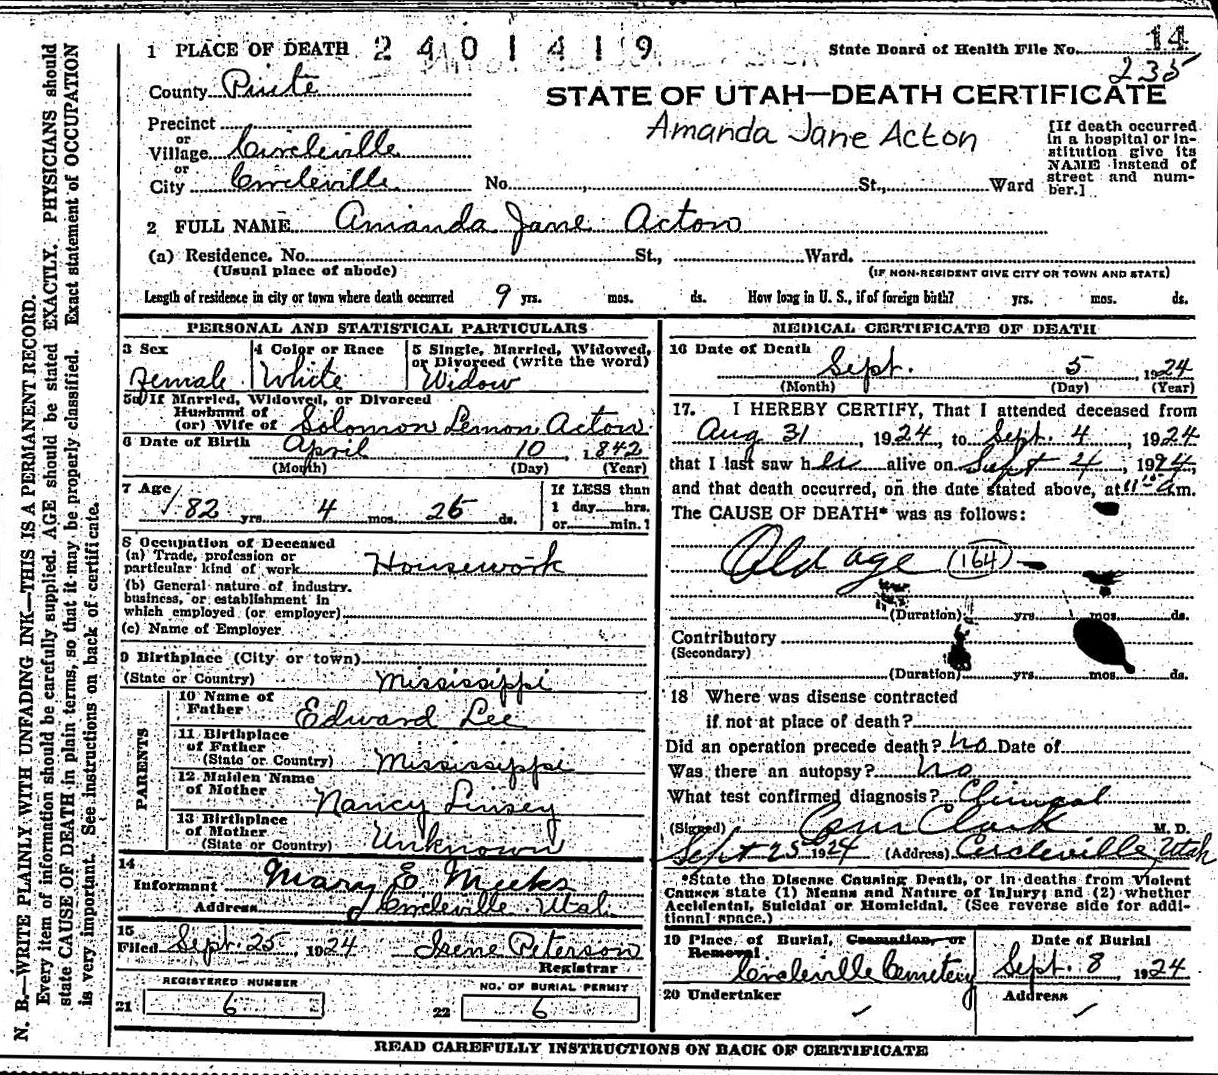 N. B.—WRITE PLAINLY WITH UNFADING INK—THIS IS A PERMANENT RECORD.
Every item of information should be carefully supplied. AGE should be stated EXACTLY. PHYSICIANS should
state CAUSE OF DEATH in plain terms, so that it may be properly classified. Exact statement of OCCUPATION
is very important. See instructions on back of certificate.
1 PLACE OF DEATH 2401419
State Board of Health File No. 14
235
County Piute
STATE OF UTAH—DEATH CERTIFICATE
Amanda Jane Acton
Precinct
or
Village Circleville
or
City Circleville No. St., Ward
[If death occurred
in a hospital or in-
stitution give its
NAME instead of
street and num-
ber.]
2 FULL NAME Amanda Jane Acton
(a) Residence. No. St., Ward.
(Usual place of abode) (IF NON-RESIDENT GIVE CITY OR TOWN AND STATE)
Length of residence in city or town where death occurred 9 yrs. mos. ds. How long in U. S., if of foreign birth? yrs. mos. ds.
PERSONAL AND STATISTICAL PARTICULARS
3 Sex
Female
4 Color or Race
White
5 Single, Married, Widowed,
or Divorced (write the word)
Widow
5a If Married, Widowed, or Divorced
Husband of
(or) Wife of Solomon Lemon Acton
6 Date of Birth April 10, 1842
(Month) (Day) (Year)
7 Age
82 yrs. 4 mos. 26 ds.
If LESS than
1 day hrs.
or min.?
8 Occupation of Deceased
(a) Trade, profession or
particular kind of work Housework
(b) General nature of industry,
business, or establishment in
which employed (or employer)
(c) Name of Employer
9 Birthplace (City or town)
(State or Country) Mississippi
PARENTS
10 Name of
Father Edward Lee
11 Birthplace
of Father
(State or Country) Mississippi
12 Maiden Name
of Mother Nancy Linsey
13 Birthplace
of Mother
(State or Country) Unknown
14
Informant Mary E Meeks
Address Circleville Utah
15
Filed Sept. 25, 1924 Irene Peterson
Registrar
REGISTERED NUMBER
21 6
NO. OF BURIAL PERMIT
22 6
MEDICAL CERTIFICATE OF DEATH
16 Date of Death
Sept. 5 1924
(Month) (Day) (Year)
17. I HEREBY CERTIFY, That I attended deceased from
Aug 31, 1924, to Sept. 4, 1924
that I last saw her alive on Sept 4, 1924,
and that death occurred, on the date stated above, at 11 a.m.
The CAUSE OF DEATH* was as follows:
Old age (164)
(Duration) yrs. mos. ds.
Contributory
(Secondary)
(Duration) yrs. mos. ds.
18 Where was disease contracted
if not at place of death?
Did an operation precede death? no Date of
Was there an autopsy? no
What test confirmed diagnosis? Clinical
(Signed) Clark M. D.
Sept 25 1924 (Address) Circleville, Utah
*State the Disease Causing Death, or in deaths from Violent
Causes state (1) Means and Nature of Injury; and (2) whether
Accidental, Suicidal or Homicidal. (See reverse side for addi-
tional space.)
19 Place of Burial, Cremation, or
Removal
Circleville Cemetery
Date of Burial
Sept. 8 1924
20 Undertaker
✓
Address
✓
READ CAREFULLY INSTRUCTIONS ON BACK OF CERTIFICATE